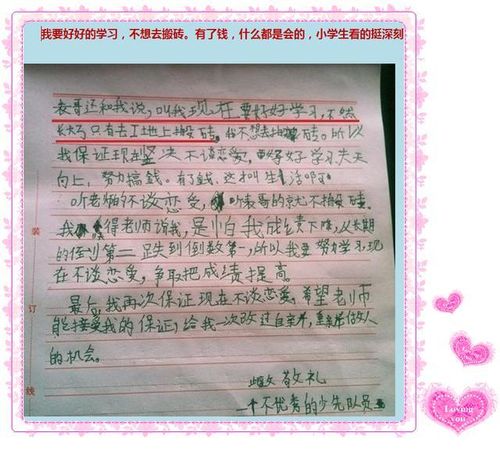 我要好好的学习，不想去搬砖。有了钱，什么都是会的，小学生看的挺深刻
表哥还和我说，叫我现在要好好学习，不然
长大了只有去工地上搬砖。我不想去搬砖。所以
我保证现在坚决不谈恋爱，要好好学习天天
向上，努力搞钱。有了钱，这才叫生活啊。
听老师的不谈恋爱，听表哥的就不搬砖。
我得老师说我，是怕我成绩下降，从长期
的倒数第二跌到倒数第一，所以我要努力学习现
在不谈恋爱，争取把成绩提高。
最后我再次保证现在不谈恋爱，希望老师
能接受我的保证，给我一次改过自新，重新做人
的机会。
敬礼
一个不优秀的少先队员
装
订
线
Loving
you